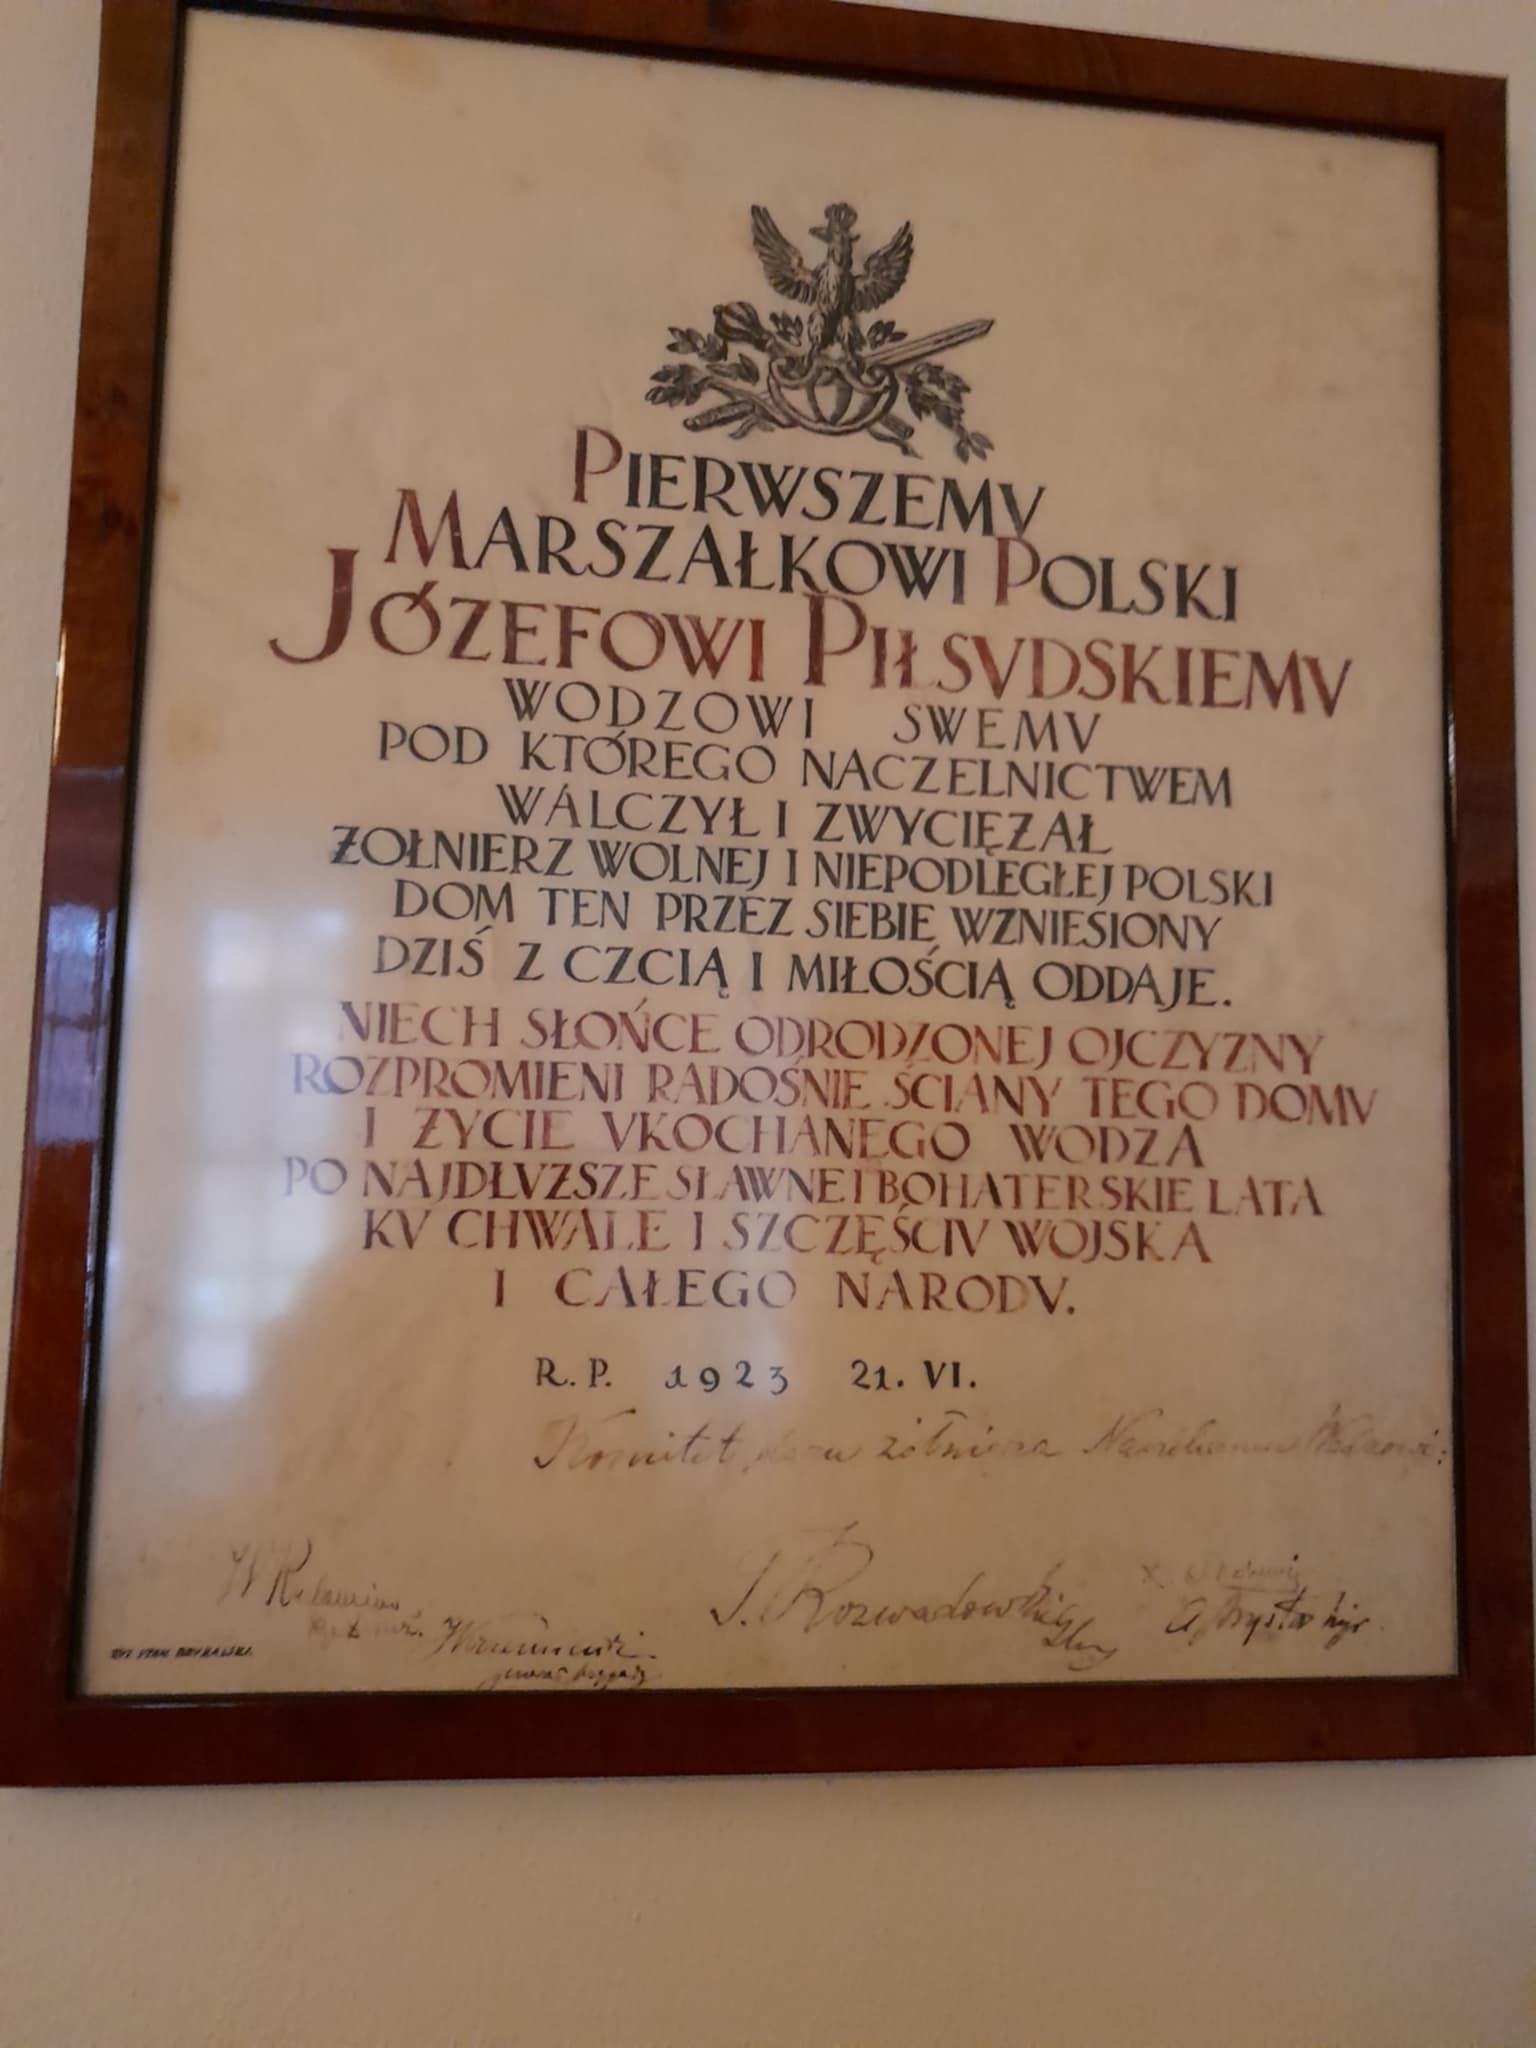 PIERWSZEMV
MARSZAŁKOWI POLSKI
JÓZEFOWI PIŁSVDSKIEMV
WODZOWI SWEMV
POD KTÓREGO NACZELNICTWEM
WALCZYŁ I ZWYCIĘŻAŁ
ŻOŁNIERZ WOLNEJ I NIEPODLEGŁEJ POLSKI
DOM TEN PRZEZ SIEBIE WZNIESIONY
DZIŚ Z CZCIĄ I MIŁOŚCIĄ ODDAJE.
NIECH SŁOŃCE ODRODZONEJ OJCZYZNY
ROZPROMIENI RADOŚNIE ŚCIANY TEGO DOMV
I ŻYCIE VKOCHANEGO WODZA
PO NAJDŁVŻSZE SŁAWNE I BOHATERSKIE LATA
KV CHWALE I SZCZĘŚCIV WOJSKA
I CAŁEGO NARODV.
R.P. 1923 21. VI.
Komitet daru żołnierza
J. Rozwadowski